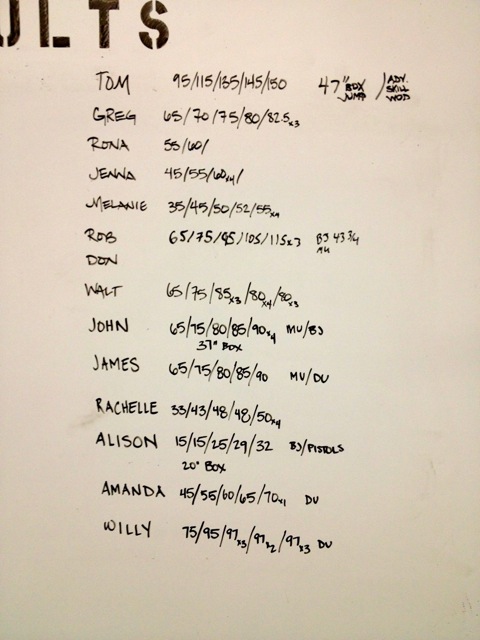 ULTS
TOM 95/115/135/145/150 47" BOX JUMP / ADV. SKILL WOD
GREG 65/70/75/80/82.5x3
RONA 55/60/
JENNA 45/55/60x4/
MELANIE 35/45/50/52/55x4
ROB 65/75/95/105/115x3 BJ 43 3/4
DON
WALT 65/75/85x3/80x4/80x3
JOHN 65/75/80/85/90x4 MU/BJ
37" BOX
JAMES 65/75/80/85/90 MU/DU
RACHELLE 33/43/48/48/50x4
ALISON 15/15/25/29/32 BJ/PISTOLS
20" BOX
AMANDA 45/55/60/65/70x1 DU
WILLY 75/95/97x3/97x2/97x3 DU